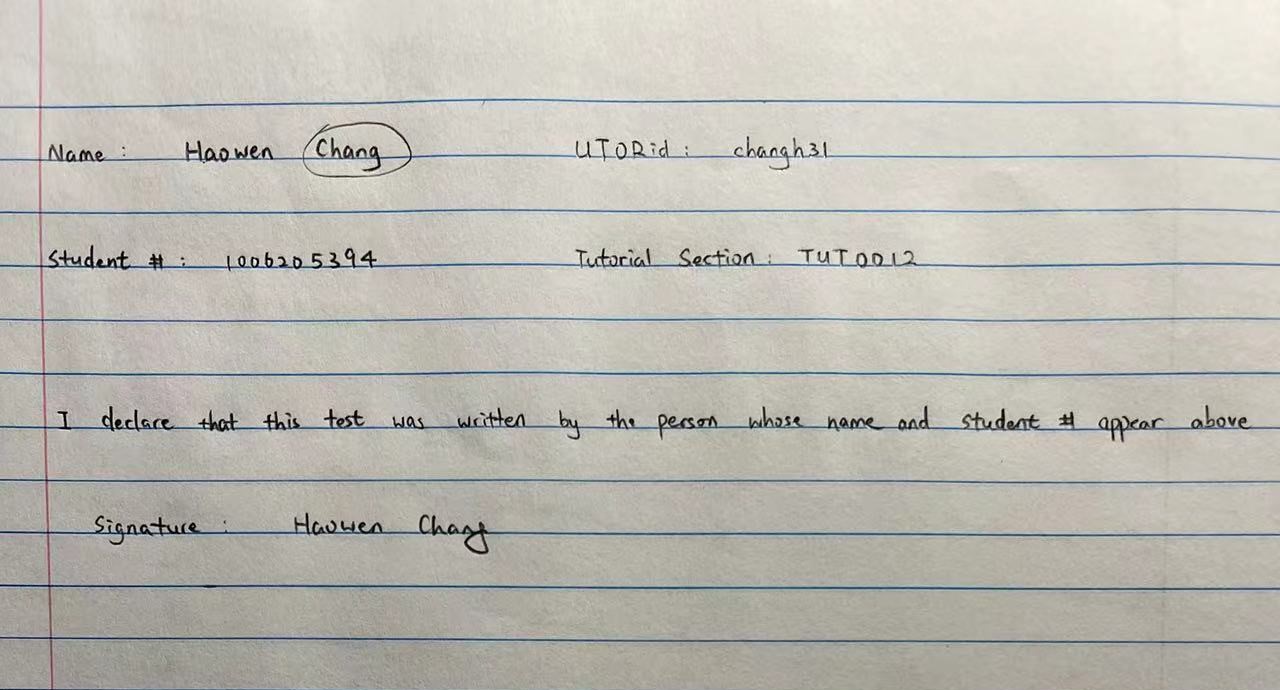 Name : Haowen Chang UTORid : changh31
Student # : 1006205394 Tutorial Section : TUT0012
I declare that this test was written by the person whose name and student # appear above
Signature : Haowen Chang